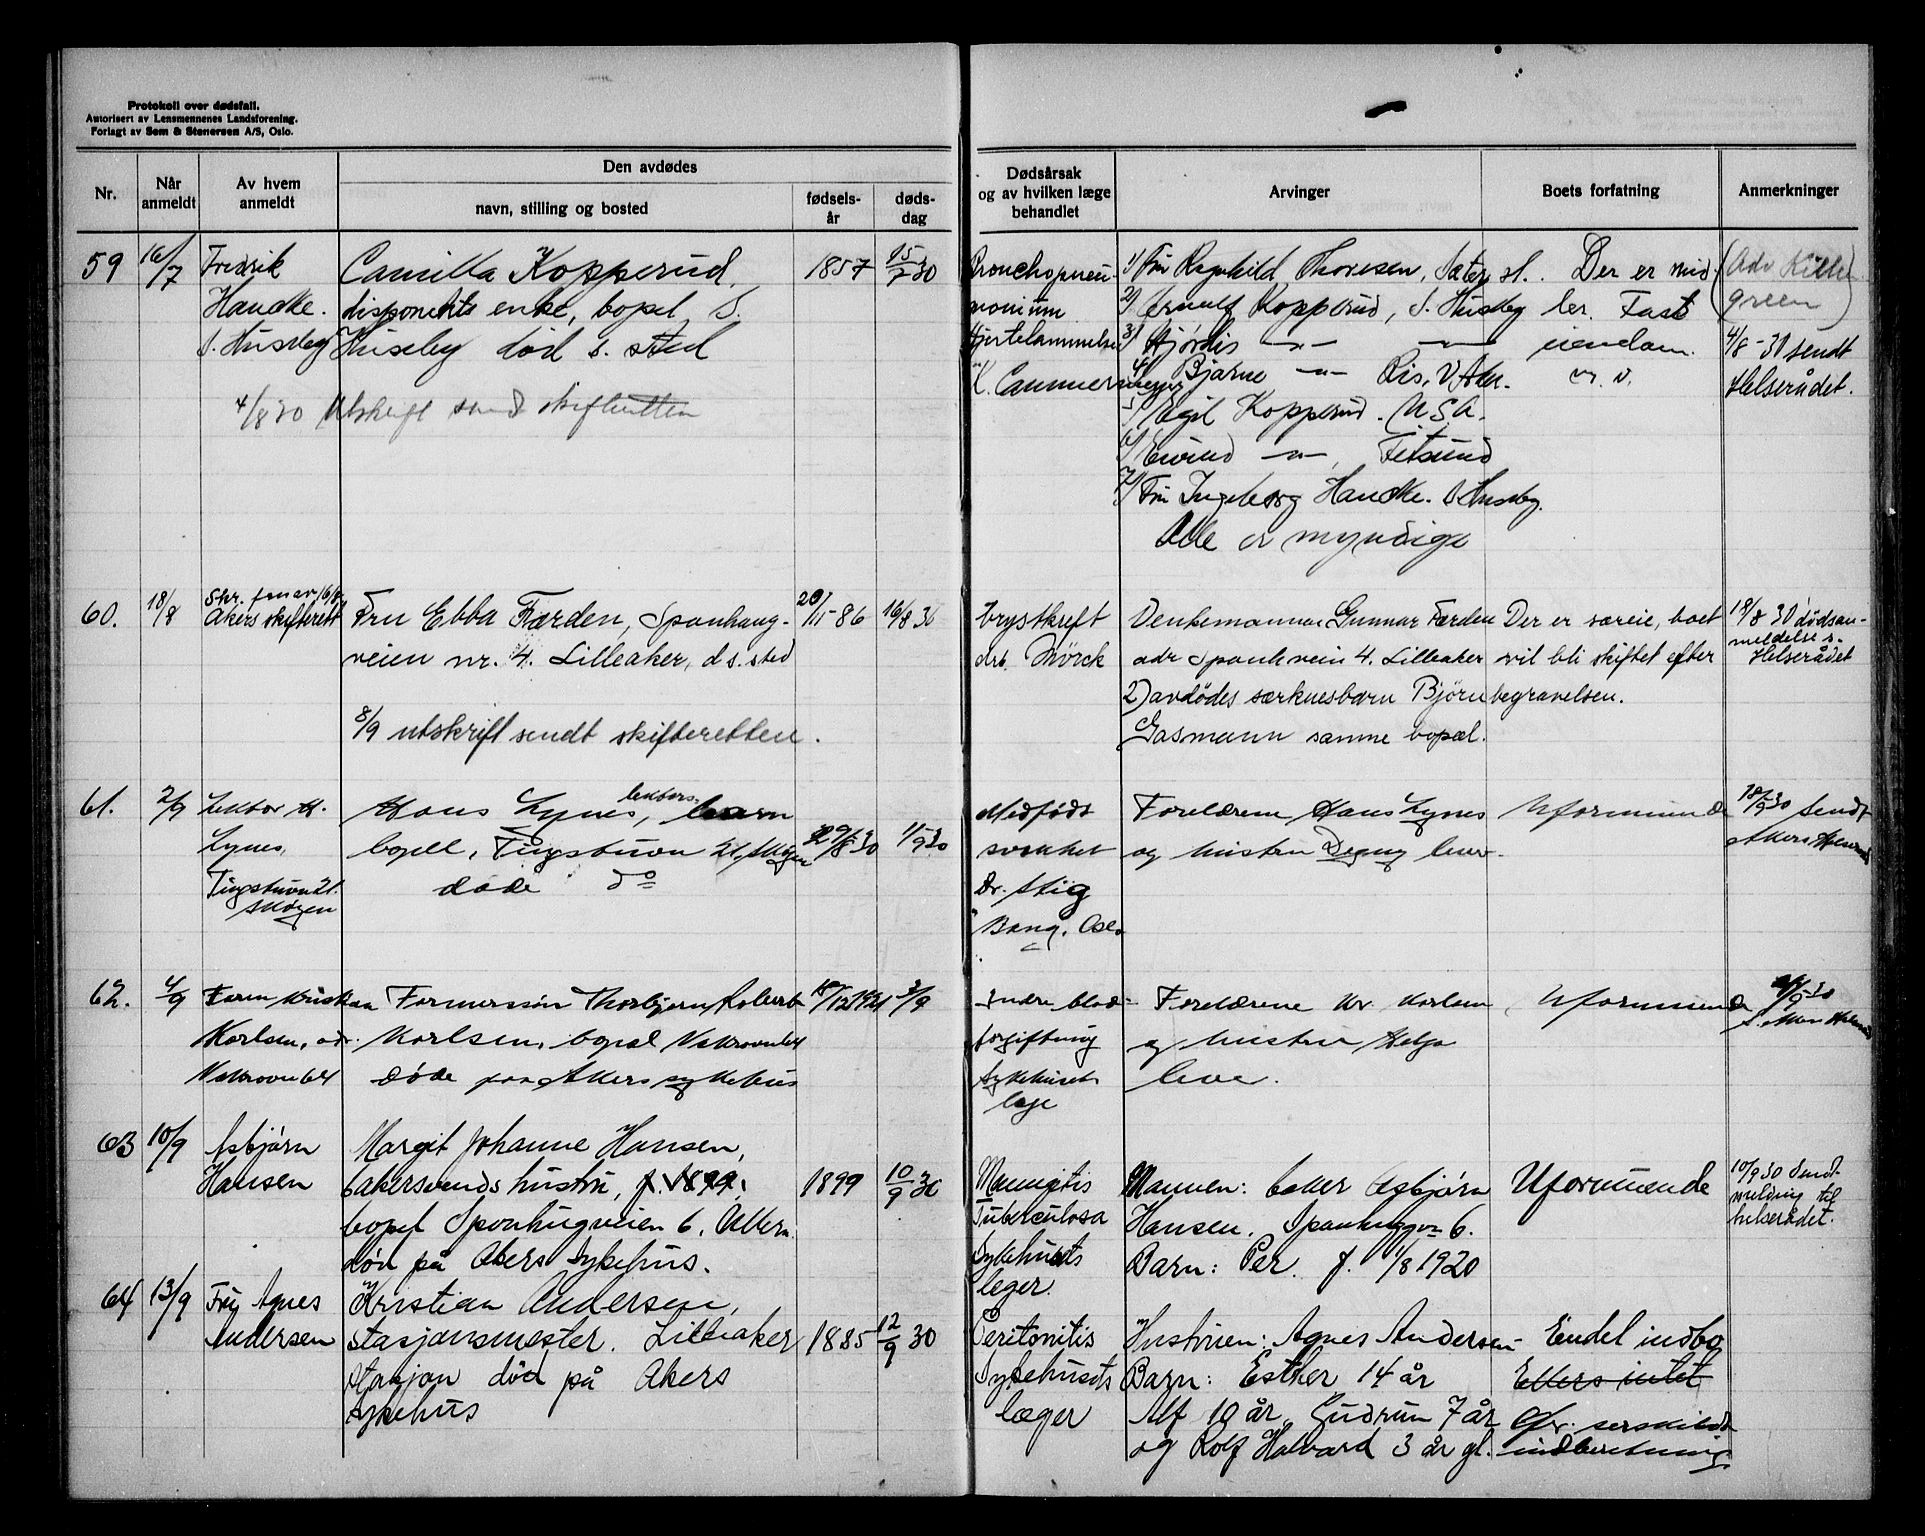 Protokoll over dødsfall.
Autorisert av Lensmennenes Landsforening.
Forlagt av Sem & Stenersen A/S, Oslo.
Nr.
Når anmeldt
Av hvem anmeldt
Den avdødes
navn, stilling og bosted
fødsels-år
døds-dag
Dødsårsak og av hvilken læge behandlet
Arvinger
Boets forfatning
Anmerkninger
59 16/7 Fredrik Camilla Kopperud, 1857 15/7 30
Handke. disponents enke, bopel S.
S. Huseby Huseby død s. sted
4/8 30 Utskrift send skifteretten
Bronchopneu-
monium
Hjertelammelse
1) Fru Ragnhild Thoresen, Sæter st.
2) Arnulf Kopperud, S. Huseby
3) Hjørdis -"- -"-
4) Bjarne -"- Ris, V. Aker.
5) Egil Kopperud. U.S.A.
6) Eivind -"-, Fetsund
7) Fru Ingeborg Handke. S Huseby.
Alle er myndige
Der er mid-
ler. Fast
eiendom.
(Adv. Kille-
green)
4/8-30 sendt
Helserådet.
60. 18/8 Akers skifterett Fru Ebba Færden, Sponhaug- 20/11-86 16/8 30
veien nr. 4. Lilleaker, d s. sted
8/9 utskrift sendt skifteretten.
brystkreft
drb. Mörck
Venkemannen Gunnar Færden
adr Sponhvein 4. Lilleaker
2) avdödes særkuesbarn Björn
Gasmann samme bopæl.
Der er særeie, boet
vil bli skiftet efter
begravelsen.
18/8 30 dödsan-
meldelse s.
Helserådet
61. 2/9 Lektor H. Hans Lynes, lektors barn 29/8 30 1/9 30
Lynes, bopel, Tingstuvn 21, Skøyen
Tingstuvn 21. døde do
Skøyen
Medfødt
svakhet
Dr. Stig
Bang, Oslo
Forældrene Hans Lynes
og hustru Dagny lever.
Uformuende
18/9 30 Sendt
Akers Helseråd
62. 4/9 Kristian Formerssön Thorbjørn Robert 18/12 1921 3/9
Karlsen, adr. Karlsen, bopæl Vækrøvn 64
Vækrøvn 64 døde paa Akers sykehus
Indre blod-
forgiftning
Sykehusets
læge
Forældrene Kr. Karlsen
og hustru Helga
lever.
Uformuende
63 10/9 Asbjørn Margit Johanne Hansen,
Hansen bakersvends hustru, f. 1899, 1899 10/9 30
bopel Sponhugveien 6, Ullern
død på Akers Sykehus.
Meningitis
Tuberculosa
Sykehusets
leger.
Mannen: baker Asbjørn
Hansen. Sponhuggvn 6.
Barn: Per. f. 1/8 1920
Uformuende
10/9 30 Sendt
melding til
helserådet.
64 13/9 Fru Agnes Kristian Andersen,
Andersen stasjonsmester. Lilleaker 1885 12/9 30
stasjon død på Akers
sykehus
Peritonitis
Sykehusets
læger
Hustruen: Agnes Andersen
Barn: Esther 14 år
Alf 10 år, Gudrun 7 år
og Rolf Halvard 3 år gl.
Endel indbo
Ellers intet
Cfr. serskildt
indberetning.